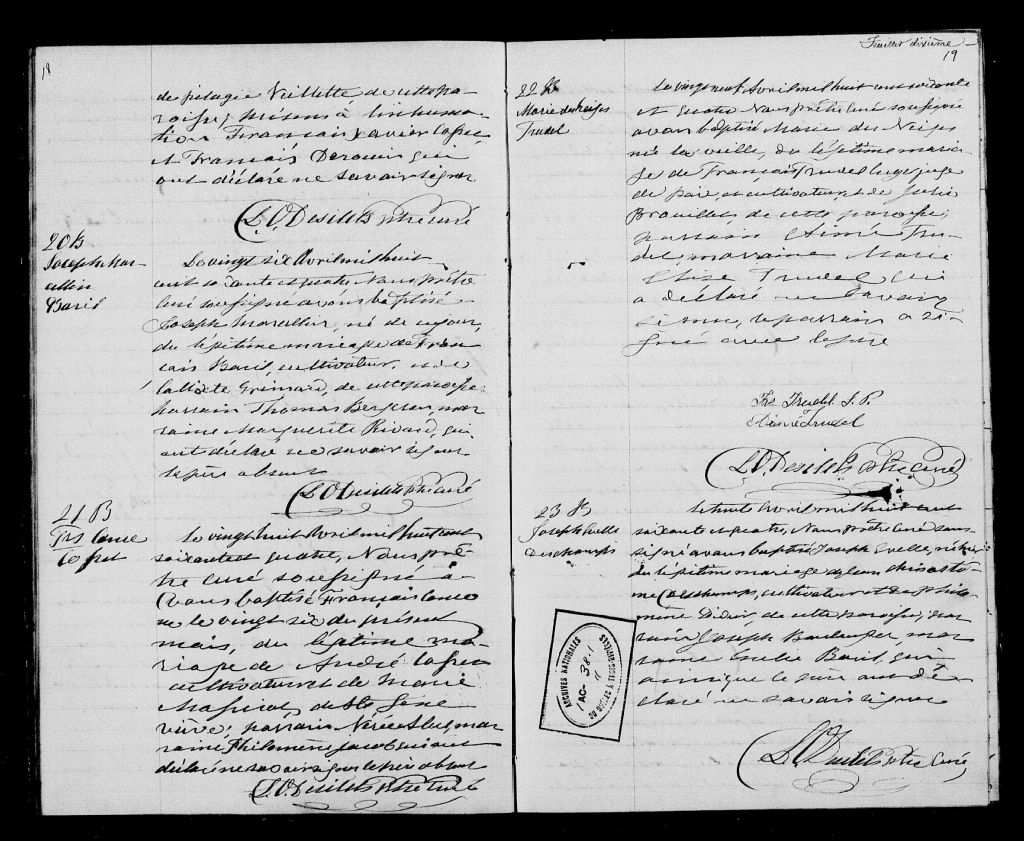 18
de pelagie Veillette de cette pa-
roisse, présens à l'inhuma-
tion Francais Xavier Lafre
et Francais Derouin qui
ont déclaré ne savoir signer
L.O. Desilets Ptre curé
20 B
Joseph Mar-
cellin
Baril
Le vingt six Avril mil huit
cent soixante et quatre Nous prêtre
curé soussigné avons baptisé
Joseph Marcellin, né de ce jour,
du légitime mariage de Fran-
cais Baril, cultivateur, et de
Grimard, de cette paroisse,
parrain Thomas Bergeron, mar-
raine Marguerite Rivard, qui
ont déclaré ne savoir signer
le père absent
L.O. Desilets Ptre curé
21 B
Frs
Le vingt huit Avril mil huit cent
soixante et quatre, Nous prê-
tre curé soussigné a-
vons baptisé Francais
né le vingt six du présent
mois, du légitime ma-
riage de André
cultivateur et de Marie
de Ste Gene
viève, parrain Nérée mar
raine Philomène Jacob qui ont
déclaré ne savoir signer le père absent
L.O. Desilets Ptre Curé
Feuillet dixième
19
22 B
Marie des Neiges
Trudel
Le vingt neuf Avril mil huit cent soixante
et quatre Nous prêtre curé soussigné
avons baptisé Marie des Neiges
née la veille, du légitime maria-
ge de Francais Trudel juge
de paix, et cultivateur, et de Julie
Brouillet de cette paroisse;
parrain Aimé Tru-
del marraine Marie
Elise Trudel qui
a déclaré ne savoir
signer, le parrain a si-
gné avec le père
Frs Trudel J. P.
Aimé Trudel
L.O. Desilets Ptre curé
23 B
Joseph
Deschamps
Le trente Avril mil huit cent
soixante et quatre, Nous prêtre curé sous-
signé avons baptisé Joseph né hier
du légitime mariage de Jean
Deschamps, cultivateur et de philo-
mène de cette paroisse, par
rain Joseph Boulanger mar
raine Julie Baril, qui
ainsi que le père ont dé
claré ne savoir signer
L.O. Desilets Ptre Curé
ARCHIVES NATIONALES
1 AC- 38-1
11